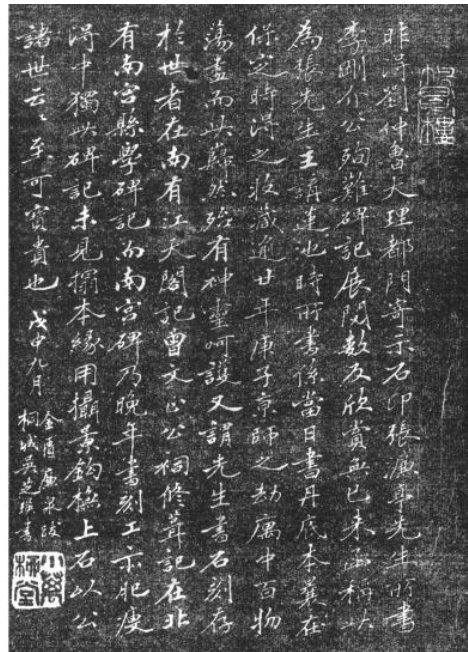 帆影樓
昨得劉仲魯大理都門寄示石印張濂亭先生所書
李剛介公殉難碑記展閱數反欣賞無已来函稱此
為張先生主講蓮池時所書係當日書丹底本曩在
保定時得之收藏逾廿年庚子京師之劫寓中百物
蕩盡而此巋然殆有神靈呵護又謂先生書石刻存
於世者在南有江天閣記曾文正公祠修葺記在北
有南宮縣學碑記而南宮碑乃晚年書刻工亦肥瘦
得中獨此碑記未見搨本緣用攝景鈎橅上石以公
諸世云云至可寶貴也 戊申九月
金匱廉泉跋
桐城吳芝瑛書
小萬柳堂